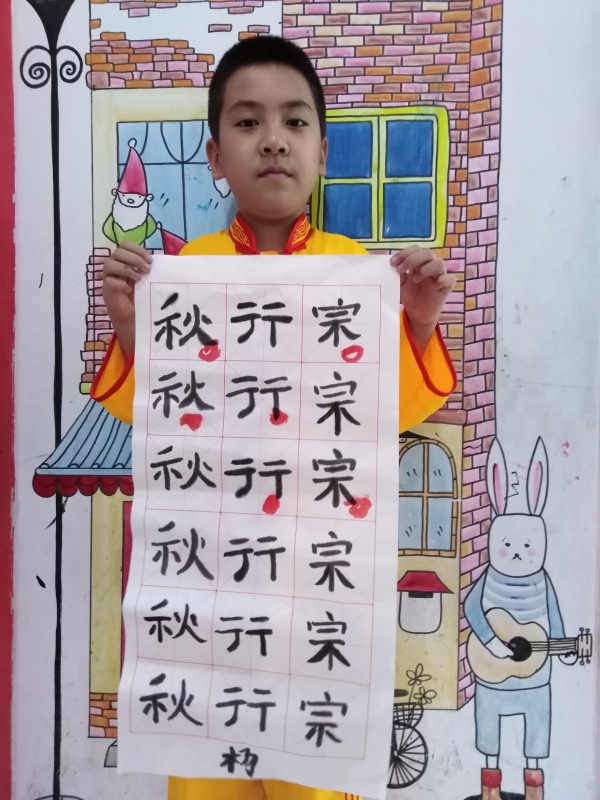 秋行宗
秋行宗
秋行宗
秋行宗
秋行宗
秋行宗
杨